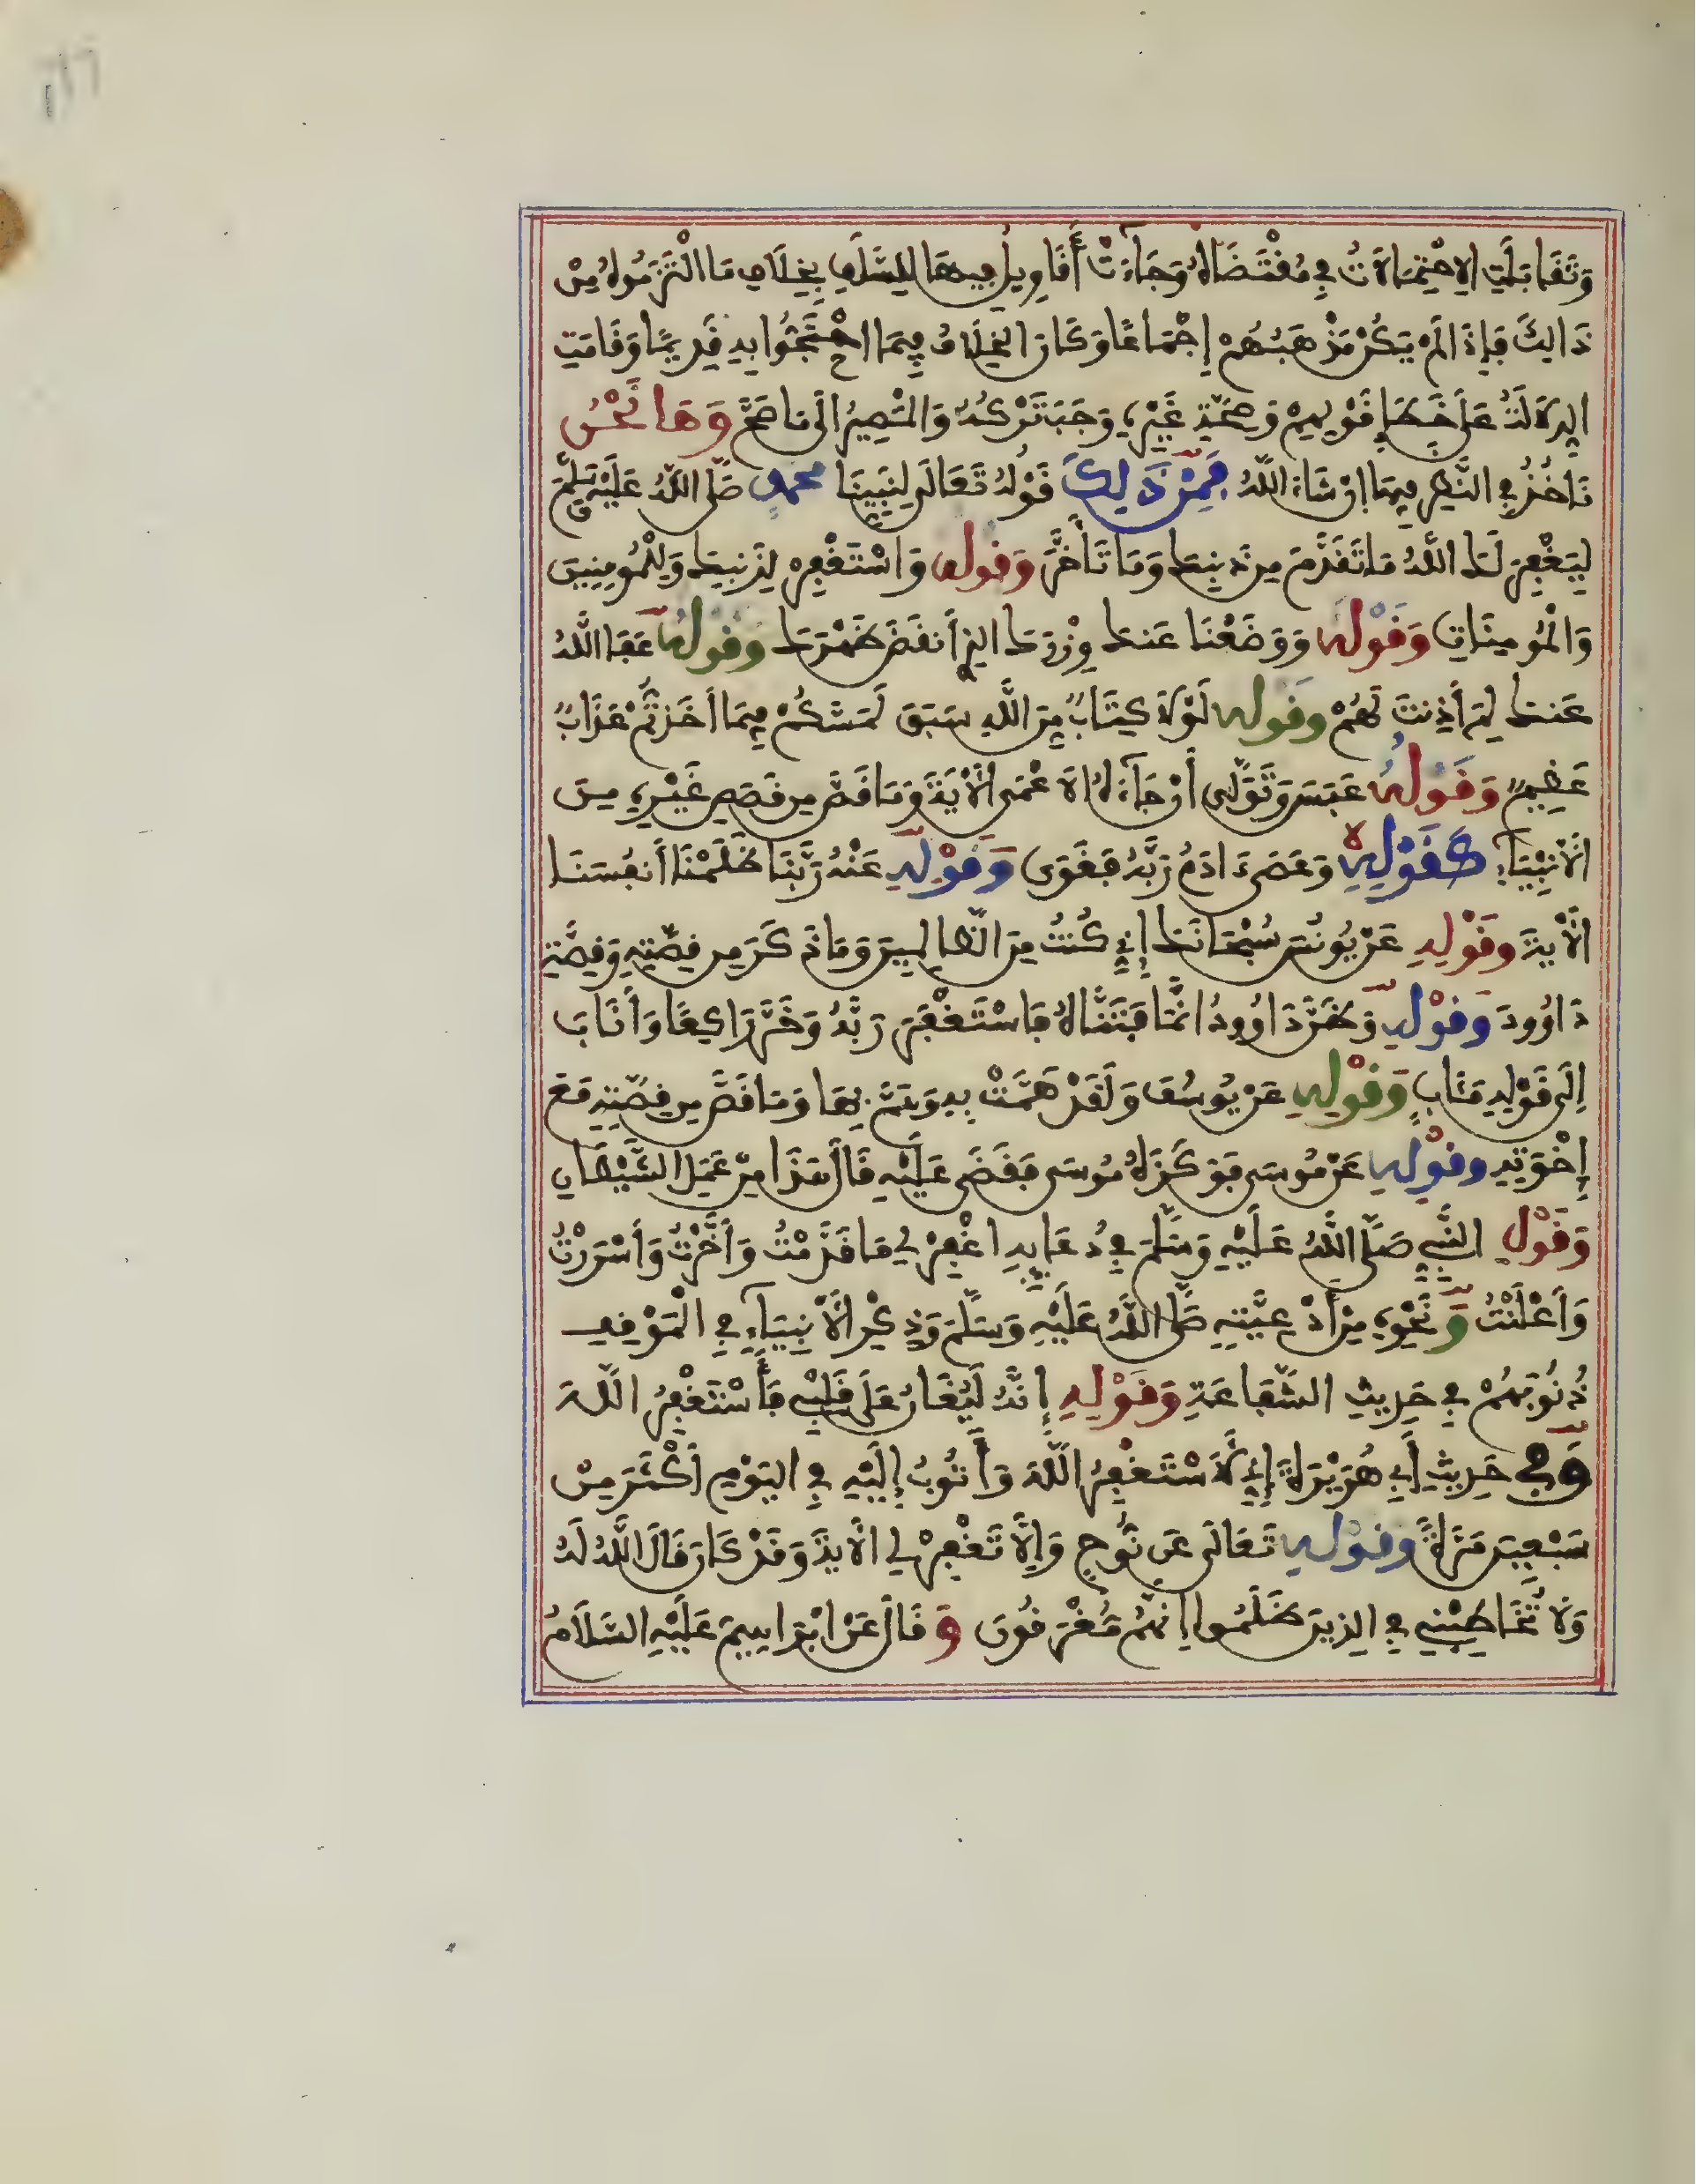 وَتَقَابَلَتِ الِاحْتِمَالَاتُ فِي مُقْتَضَاهُ وَجَاءَتْ أَقَاوِيلُ فِيهَا لِلسَّلَفِ بِخِلَافِ مَا الْتَزَمُوهُ مِنْ
ذَالِكَ فَإِذَا لَمْ يَكُنْ مَذْهَبُهُمْ إِجْمَاعًا وَكَانَ الْخِلَافُ فِيمَا احْتَجُّوا بِهِ قَدِيمًا وَقَامَتِ
الدِّلَالَةُ عَلَى خَطَإِ قَوْلِهِمْ وَصِحَّةِ غَيْرِهِ وَجَبَ تَرْكُهُ وَالْمَصِيرُ إِلَى مَا صَحَّ وَهَا نَحْنُ
نَأْخُذُ فِي النَّظَرِ فِيهَا إِنْ شَاءَ اللَّهُ فَمِنْ ذَلِكَ قَوْلُهُ تَعَالَى لِنَبِيِّنَا مُحَمَّدٍ صَلَّى اللَّهُ عَلَيْهِ وَسَلَّمَ
لِيَغْفِرَ لَكَ اللَّهُ مَا تَقَدَّمَ مِنْ ذَنْبِكَ وَمَا تَأَخَّرَ وَقَوْلُهُ وَاسْتَغْفِرْ لِذَنْبِكَ وَلِلْمُومِنِينَ
وَالْمُومِنَاتِ وَقَوْلُهُ وَوَضَعْنَا عَنكَ وِزْرَكَ الذِي أَنقَضَ ظَهْرَكَ وَقَوْلُهُ عَفَا اللَّهُ
عَنكَ لِمَ أَذِنتَ لَهُمْ وَقَوْلُهُ لَوْلَا كِتَابٌ مِنَ اللَّهِ سَبَقَ لَمَسَّكُمْ فِيمَا أَخَذتُّمْ عَذَابٌ
عَظِيمٌ وَقَوْلُهُ عَبَسَ وَتَوَلَّى أَن جَاءَهُ الَاعْمَى الْآيَةَ وَمَا قَصَّ مِن قَصَصِ غَيْرِهِ مِنَ
الْأَنْبِيَاءِ كَقَوْلِهِ وَعَصَى ءَادَمُ رَبَّهُ فَغَوَى وَقَوْلِهِ عَنْهُ رَبَّنَا ظَلَمْنَا أَنفُسَنَا
الْآيَةَ وَقَوْلِهِ عَنْ يُونُسَ سُبْحَانَكَ إِنِّي كُنْتُ مِنَ الظَّالِمِينَ وَمَا ذَكَرَ مِن قِصَّتِهِ وَقِصَّةِ
دَاوُودَ وَقَوْلِهِ وَظَنَّ دَاوُودُ أَنَّمَا فَتَنَّاهُ فَاسْتَغْفَرَ رَبَّهُ وَخَرَّ رَاكِعًا وَأَنَابَ
إِلَى قَوْلِهِ مَئَابٍ وَقَوْلِهِ عَنْ يُوسُفَ وَلَقَدْ هَمَّتْ بِهِ وَهَمَّ بِهَا وَمَا قَصَّ مِن قِصَّتِهِ مَعَ
إِخْوَتِهِ وَقَوْلِهِ عَنْ مُوسَى فَوَكَزَهُ مُوسَى فَقَضَى عَلَيْهِ قَالَ هَذَا مِنْ عَمَلِ الشَّيْطَانِ
وَقَوْلِ النَّبِيِّ صَلَّى اللَّهُ عَلَيْهِ وَسَلَّمَ فِي دُعَايِهِ اغْفِرْ لِي مَا قَدَّمْتُ وَأَخَّرْتُ وَأَسْرَرْتُ
وَأَعْلَنْتُ وَنَحْوِهِ مِنْ أَدْعِيَّتِهِ صَلَّى اللَّهُ عَلَيْهِ وَسَلَّمَ وَذِكْرِ الْأَنْبِيَاءِ فِي الْمَوْقِفِ
ذُنُوبَهُمْ فِي حَدِيثِ الشَّفَاعَةِ وَقَوْلِهِ إِنَّهُ لَيُغَانُ عَلَى قَلْبِي فَأَسْتَغْفِرُ اللَّهَ
وَفِي حَدِيثِ أَبِي هُرَيْرَةَ إِنِّي لَأَسْتَغْفِرُ اللَّهَ وَأَتُوبُ إِلَيْهِ فِي الْيَوْمِ أَكْثَرَ مِنْ
سَبْعِينَ مَرَّةً وَقَوْلِهِ تَعَالَى عَن نُوحٍ وَإِلَّا تَغْفِرْ لِي الْآيَةَ وَقَدْ كَانَ قَالَ اللَّهُ لَهُ
وَلَا تُخَاطِبْنِي فِي الذِينَ ظَلَمُوا إِنَّهُمْ مُغْرَقُونَ وَقَالَ عَنْ ابْرَاهِيمَ عَلَيْهِ السَّلَامُ